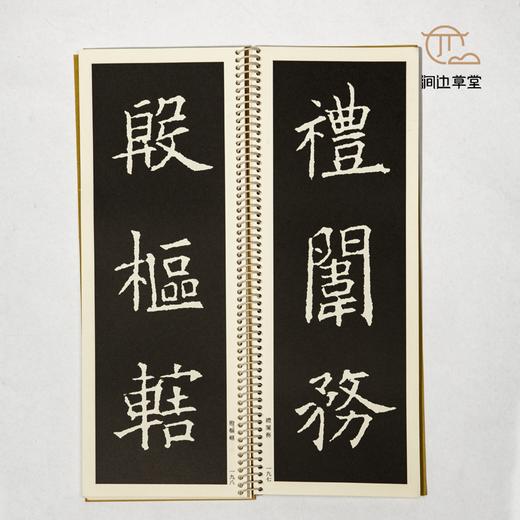 涧边草堂
禮闈務
殷樞轄
禮闈務
一九七
殷樞轄
一九八